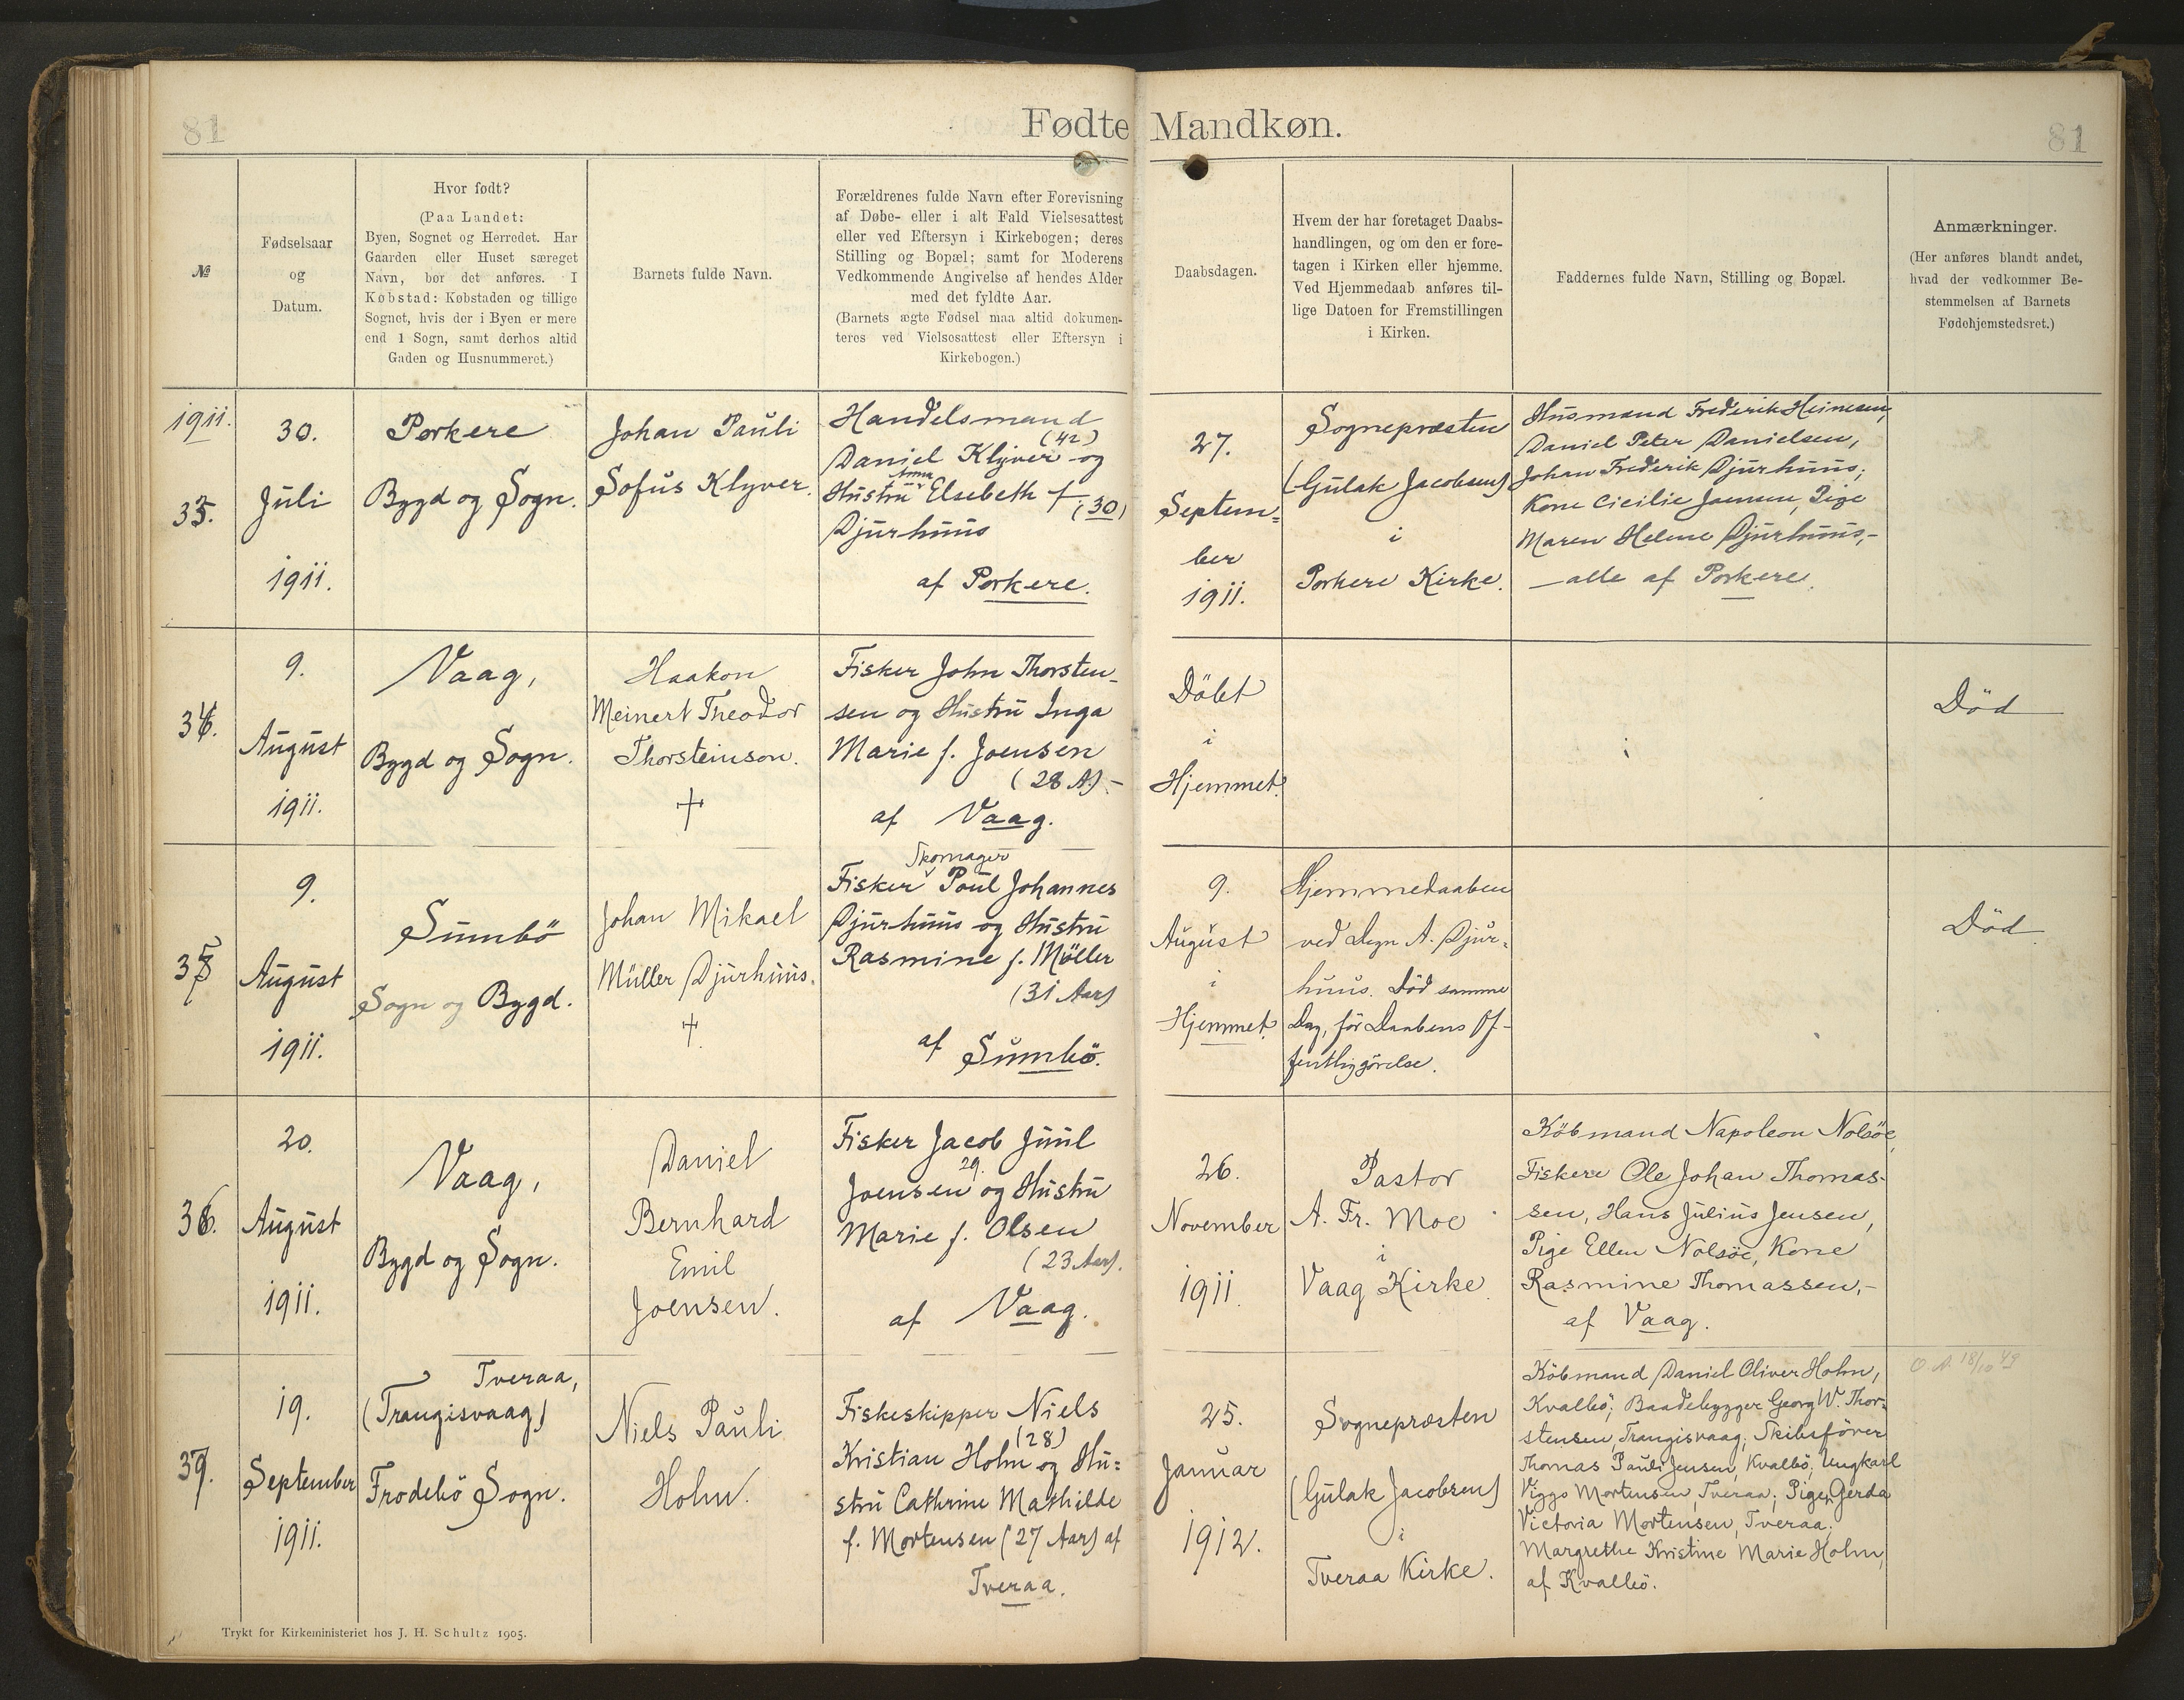 81
Fødte Mandkøn.
81
№
Fødselsaar
og
Datum.
Hvor født?
(Paa Landet:
Byen, Sognet og Herredet. Har
Gaarden eller Huset særeget
Navn, bør det anføres. I
Købstad: Købstaden og tillige
Sognet, hvis der i Byen er mere
end 1 Sogn, samt derhos altid
Gaden og Husnummeret.)
Barnets fulde Navn.
Forældrenes fulde Navn efter Forevisning
af Døbe- eller i alt Fald Vielsesattest
eller ved Eftersyn i Kirkebogen; deres
Stilling og Bopæl; samt for Moderens
Vedkommende Angivelse af hendes Alder
med det fyldte Aar.
(Barnets ægte Fødsel maa altid dokumen-
teres ved Vielsesattest eller Eftersyn i
Kirkebogen.)
Daabsdagen.
Hvem der har foretaget Daabs-
handlingen, og om den er fore-
tagen i Kirken eller hjemme.
Ved Hjemmedaab anføres til-
lige Datoen for Fremstillingen
i Kirken.
Faddernes fulde Navn, Stilling og Bopæl.
Anmærkninger.
(Her anføres blandt andet,
hvad der vedkommer Be-
stemmelsen af Barnets
Fødehjemstedsret.)
1911.
33.
30.
Juli
1911.
Porkere
Bygd og Sogn.
Johan Pauli
Sofus Klyver.
Handelsmand
(42)
Daniel Klyver og
Anna
Hustru Elsebeth f.
(30)
Djurhuus
af Porkere.
27.
Septem=
ber
1911.
Sognepræsten
(Gulak Jacobsen)
i
Porkere Kirke.
Husmand Frederik Heinesen,
Daniel Peter Danielsen,
Johan Frederik Djurhuus;
Kone Cicilie Joensen, Pige
Maren Helene Djurhuus,-
- alle af Porkere.
34.
9.
August
1911.
Vaag,
Bygd og Sogn.
Haakon
Meinert Theodor
Thorsteinson.
†
Fisker John Thorsten-
sen og Hustru Inga
Marie f. Joensen
(28 A.) -
af Vaag.
Döbt
i
Hjemmet.
Död
35
9.
August
1911.
Sumbö
Sogn og Bygd.
Johan Mikael
Müller Djurhuus.
†
Skomager
Fisker Poul Johannes
Djurhuus og Hustru
Rasmine f. Möller
(31 Aar)
af Sumbö.
9.
August
i
Hjemmet.
Hjemmedaaben
ved Degn A. Djur=
huus. Död samme
Dag, för Daabens Of-
fentliggörelse.
Död.
36.
20.
August
1911.
Vaag,
Bygd og Sogn.
Daniel
Bernhard
Emil
Joensen.
Fisker Jacob Juul
29.
Joensen og Hustru
Marie f. Olsen
(23 Aar).
af Vaag.
26.
November
1911.
Pastor
A. Fr. Moe
i
Vaag Kirke.
Köbmand Napoleon Nolsöe,
Fiskere Ole Johan Thomas-
sen, Hans Julius Jensen,
Pige Ellen Nolsöe, Kone
Rasmine Thomassen,-
af Vaag.
37.
19.
September
1911.
Tveraa,
(Trangisvaag)
Frodebö Sogn.
Niels Pauli
Holm.
Fiskeskipper Niels
(28)
Kristian Holm og Hu=
stru Cathrine Mathilde
f. Mortensen (27 Aar) af
Tveraa.
25.
Januar
1912.
Sognepræsten
(Gulak Jacobsen)
i
Tveraa Kirke.
Köbmand Daniel Oliver Holm,
Kvalbö; Baadebygger Georg W. Thor=
stensen, Trangisvaag; Skibsförer
Thomas Pauli Jensen, Kvalbö; Ungkarl
Viggo Mortensen, Tveraa; Piger Gerda
Victoria Mortensen, Tveraa;
Margrethe Kristine Marie Holm,
af Kvalbö.
18/10 49
Trykt for Kirkeministeriet hos J. H. Schultz 1905.